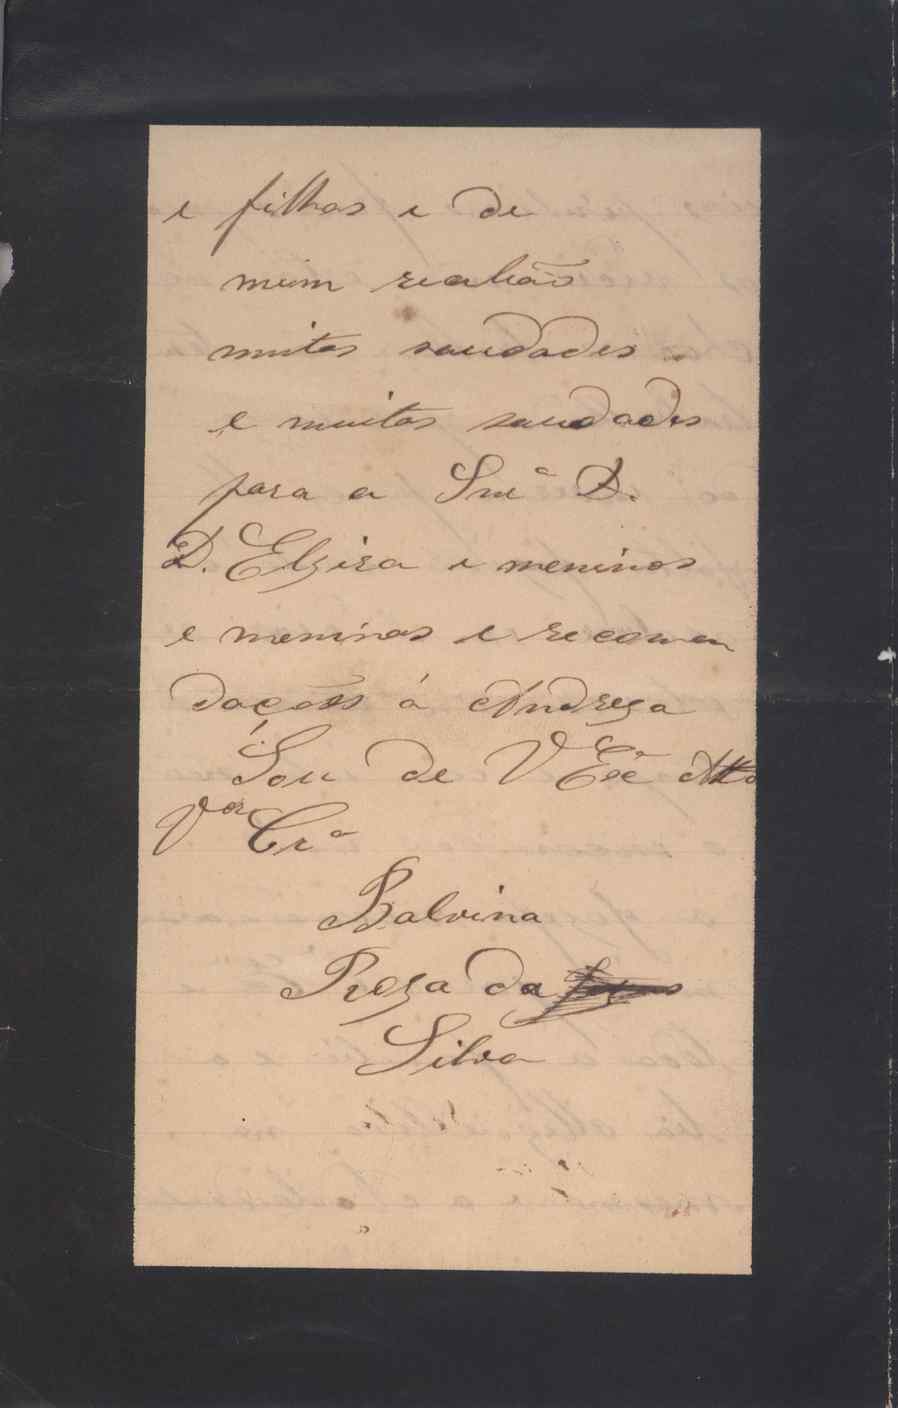 e filhos e de
mim recebão
muitas saudades.
e muitas saudades
para a Snrª D.
D. Elzira e meninos
e meninas e recomen
dações á Andreza
Sou de V Exª Attª
Vor Crª
Balvina
Roza da
Silva